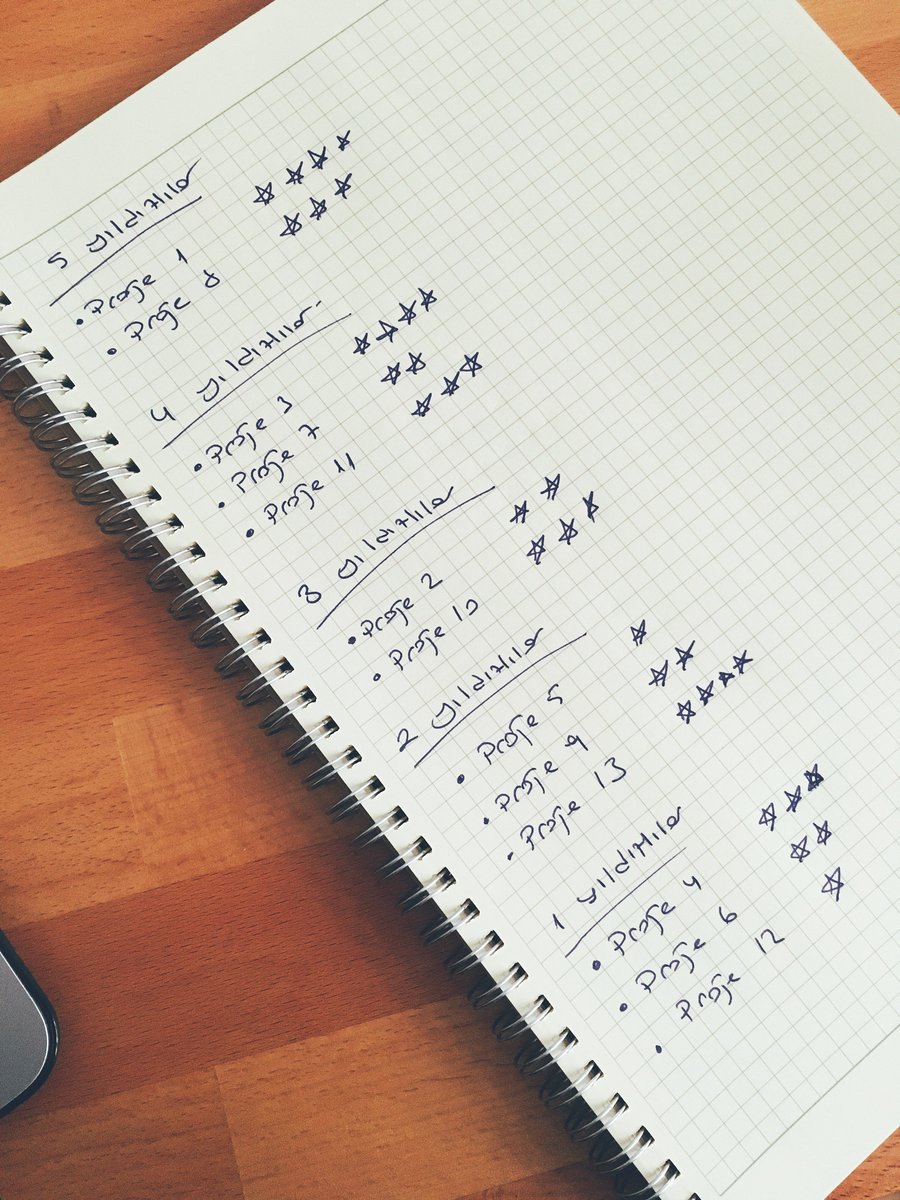 5 yıldızlılar
• Proje 1
• Proje 8
4 yıldızlılar
• Proje 3
• Proje 7
• Proje 11
3 yıldızlılar
• Proje 2
• Proje 10
2 yıldızlılar
• Proje 5
• Proje 9
• Proje 13
1 yıldızlılar
• Proje 4
• Proje 6
• Proje 12